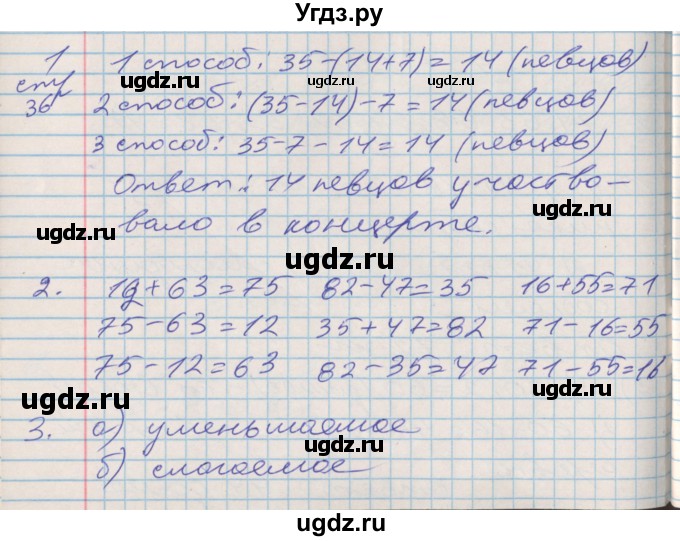 Угдз.ру
1 1 способ: 35-(14+7)=14 (певцов)
стр ugdz.ru ugdz.ru
36 2 способ: (35-14)-7=14 (певцов)
3 способ: 35-7-14=14 (певцов)
ugdz.ru ugdz.ru
Ответ: 14 певцов участво-
ugdz.ru вало в концерте.
ugdz.ru
2. 12+63=75 82-47=35 16+55=71
75-63=12 35+47=82 71-16=55
ugdz.ru ugdz.ru
75-12=63 82-35=47 71-55=16
ugdz.ru
3. а) уменьшаемое
ugdz.ru
б) слагаемое
ugdz.ru ugdz.ru
ugdz.ru